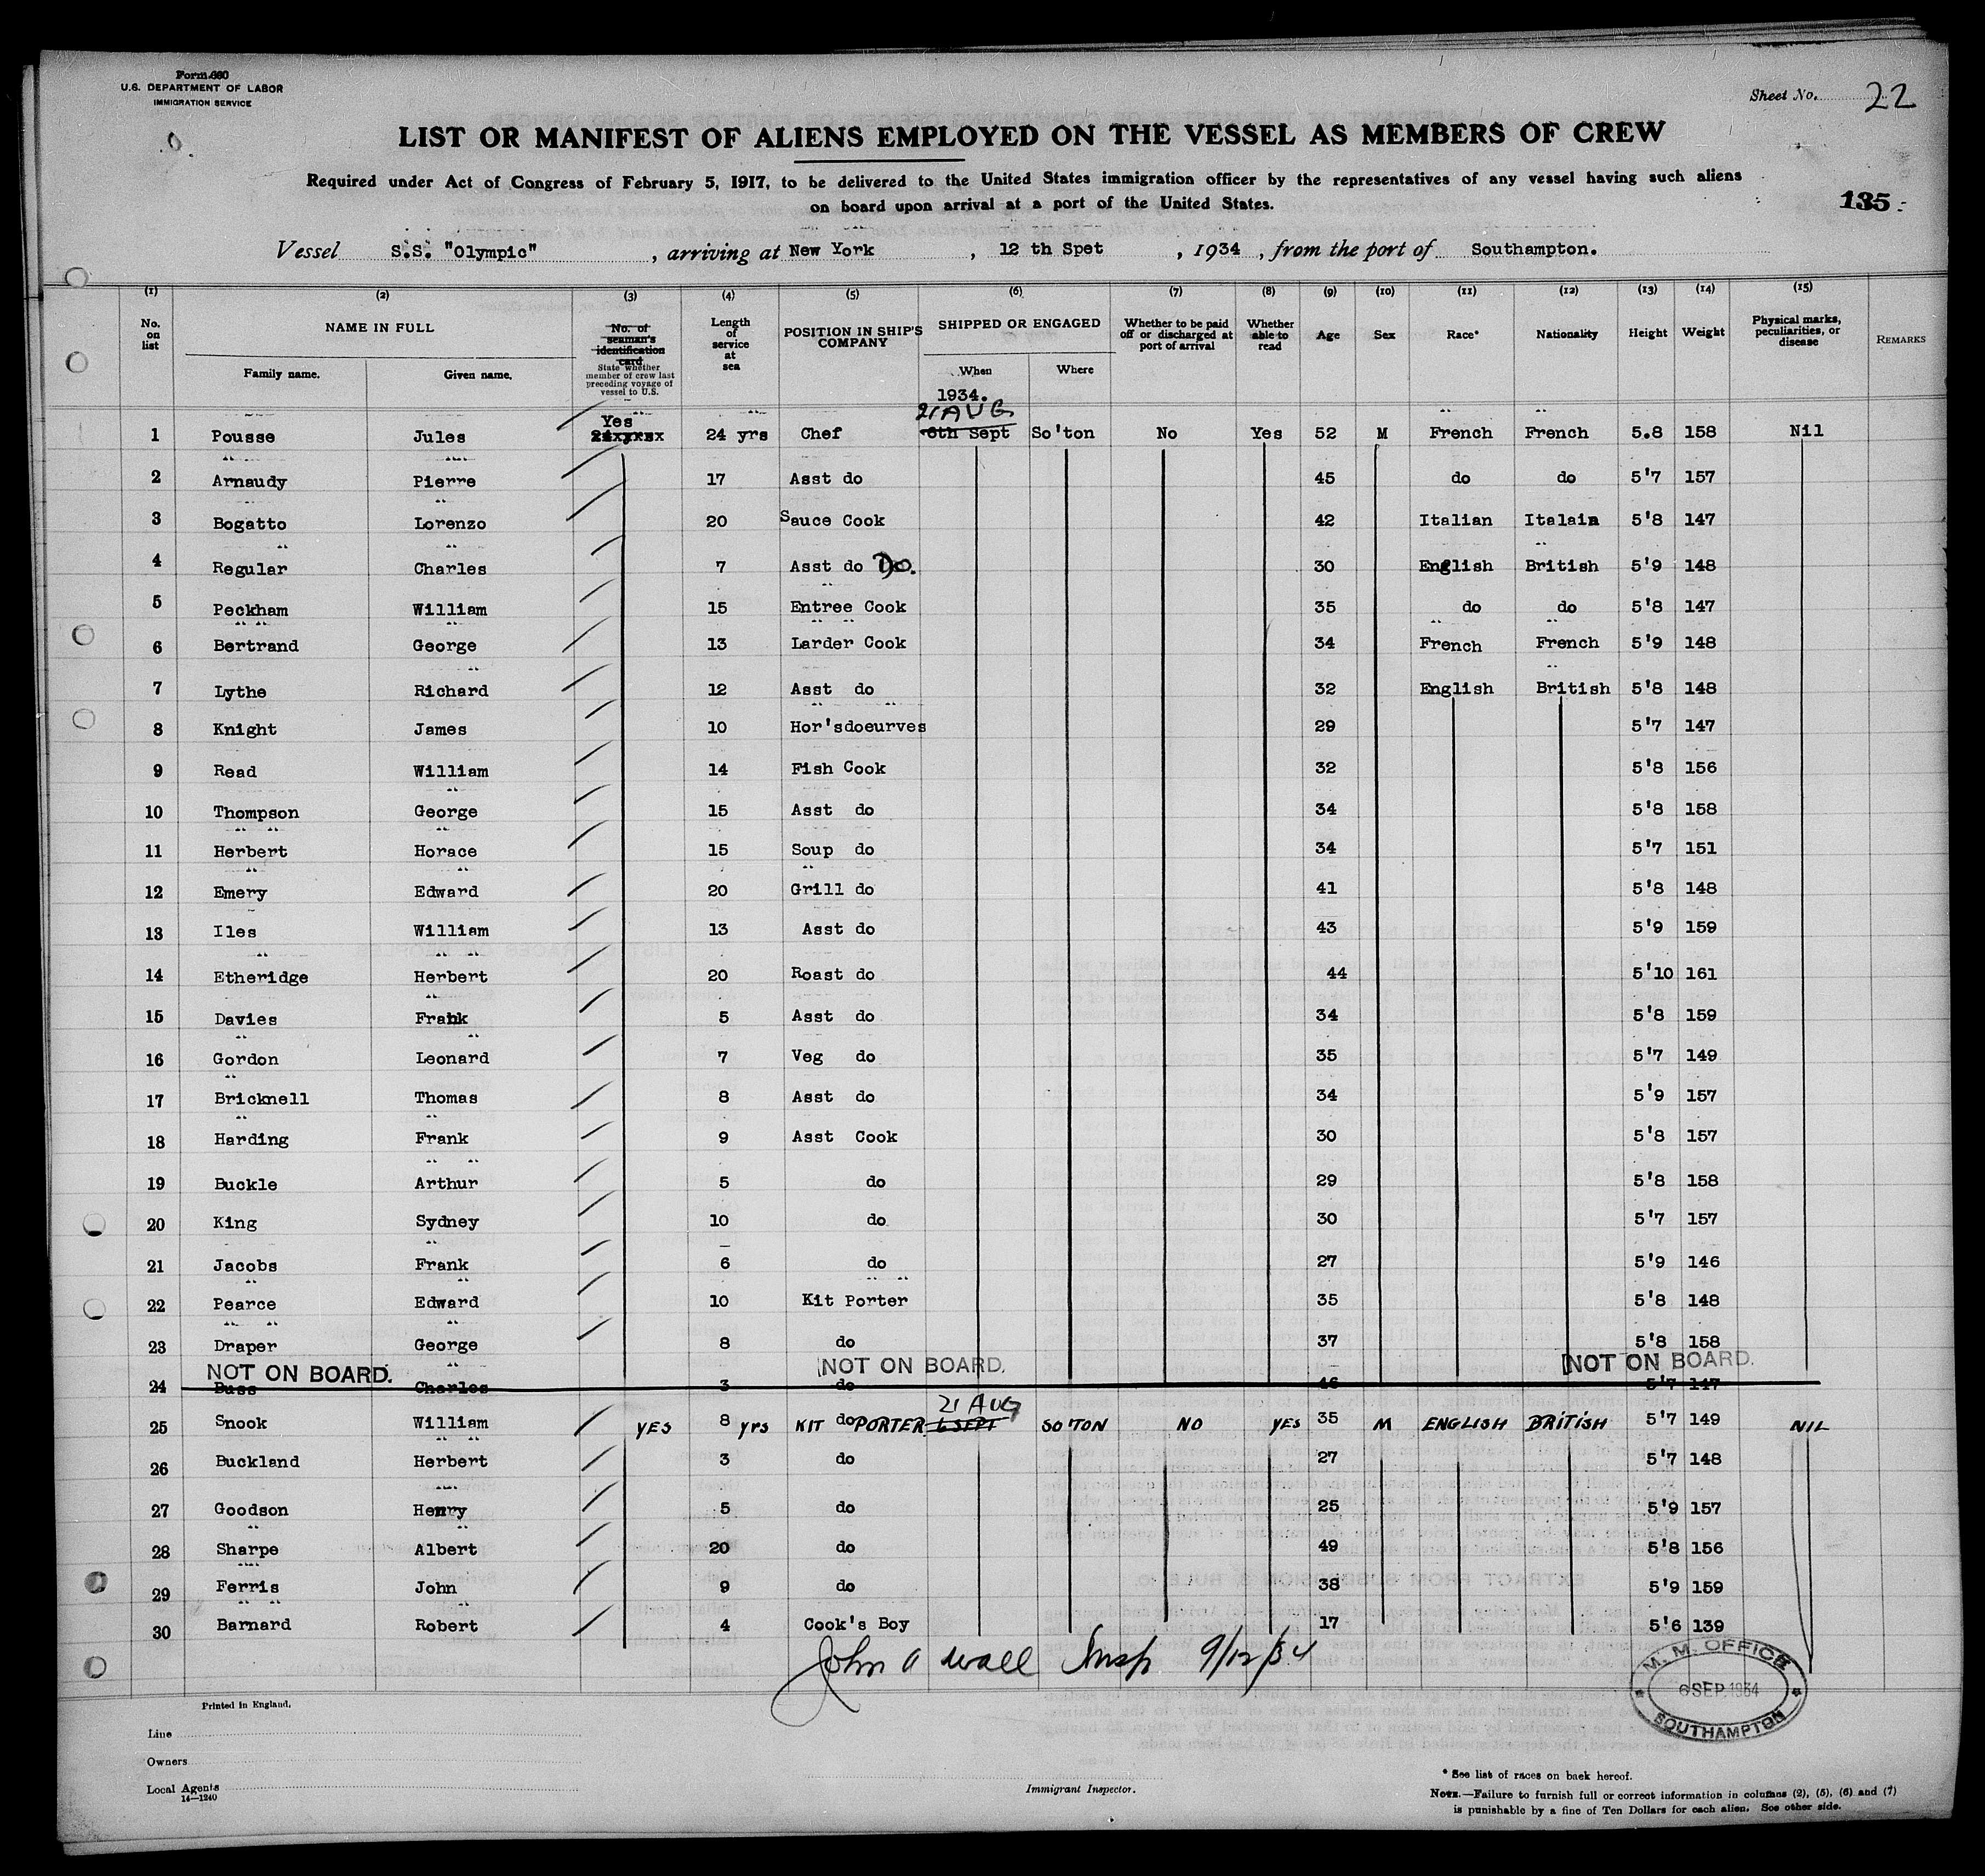 Form 680
U.S. DEPARTMENT OF LABOR
IMMIGRATION SERVICE
Sheet No. 22
LIST OR MANIFEST OF ALIENS EMPLOYED ON THE VESSEL AS MEMBERS OF CREW
Required under Act of Congress of February 5, 1917, to be delivered to the United States immigration officer by the representatives of any vessel having such aliens
on board upon arrival at a port of the United States.
135
Vessel S.S. "Olympic", arriving at New York, 12 th Spet, 1934, from the port of Southampton.
(1) (2) (3) (4) (5) (6) (7) (8) (9) (10) (11) (12) (13) (14) (15)
No. on list NAME IN FULL Family name. Given name. No. of seaman's identification card State whether member of crew last preceding voyage of vessel to U.S. Length of service at sea POSITION IN SHIP'S COMPANY SHIPPED OR ENGAGED When Where Whether to be paid off or discharged at port of arrival Whether able to read Age Sex Race* Nationality Height Weight Physical marks, peculiarities, or disease REMARKS
1934.
Yes 21 AUG
1 Pousse Jules 24xyrsx 24 yrs Chef 6th Sept So'ton No Yes 52 M French French 5.8 158 Nil
2 Arnaudy Pierre 17 Asst do 45 do do 5'7 157
3 Bogatto Lorenzo 20 Sauce Cook 42 Italian Italain 5'8 147
4 Regular Charles 7 Asst do Do. 30 English British 5'9 148
5 Peckham William 15 Entree Cook 35 do do 5'8 147
6 Bertrand George 13 Larder Cook 34 French French 5'9 148
7 Lythe Richard 12 Asst do 32 English British 5'8 148
8 Knight James 10 Hor'sdoeurves 29 5'7 147
9 Read William 14 Fish Cook 32 5'8 156
10 Thompson George 15 Asst do 34 5'8 158
11 Herbert Horace 15 Soup do 34 5'7 151
12 Emery Edward 20 Grill do 41 5'8 148
13 Iles William 13 Asst do 43 5'9 159
14 Etheridge Herbert 20 Roast do 44 5'10 161
15 Davies Frank 5 Asst do 34 5'8 159
16 Gordon Leonard 7 Veg do 35 5'7 149
17 Bricknell Thomas 8 Asst do 34 5'9 157
18 Harding Frank 9 Asst Cook 30 5'8 157
19 Buckle Arthur 5 do 29 5'8 158
20 King Sydney 10 do 30 5'7 157
21 Jacobs Frank 6 do 27 5'9 146
22 Pearce Edward 10 Kit Porter 35 5'8 148
23 Draper George 8 do 37 5'8 158
NOT ON BOARD. NOT ON BOARD. NOT ON BOARD.
24 Buss Charles 3 do 46 5'7 147
21 AUG
25 Snook William YES 8 yrs do KIT PORTER 6 SEPT SO'TON NO YES 35 M ENGLISH BRITISH 5'7 149 NIL
26 Buckland Herbert 3 do 27 5'7 148
27 Goodson Henry 5 do 25 5'9 157
28 Sharpe Albert 20 do 49 5'8 156
29 Ferris John 9 do 38 5'9 159
30 Barnard Robert 4 Cook's Boy 17 5'6 139
John A Wall Insp 9/12/34
M. M. OFFICE
6 SEP. 1934
SOUTHAMPTON
Printed in England.
Line
Owners
Local Agents
14—1240
Immigrant Inspector.
* See list of races on back hereof.
NOTE.—Failure to furnish full or correct information in columns (2), (5), (6) and (7)
is punishable by a fine of Ten Dollars for each alien. See other side.